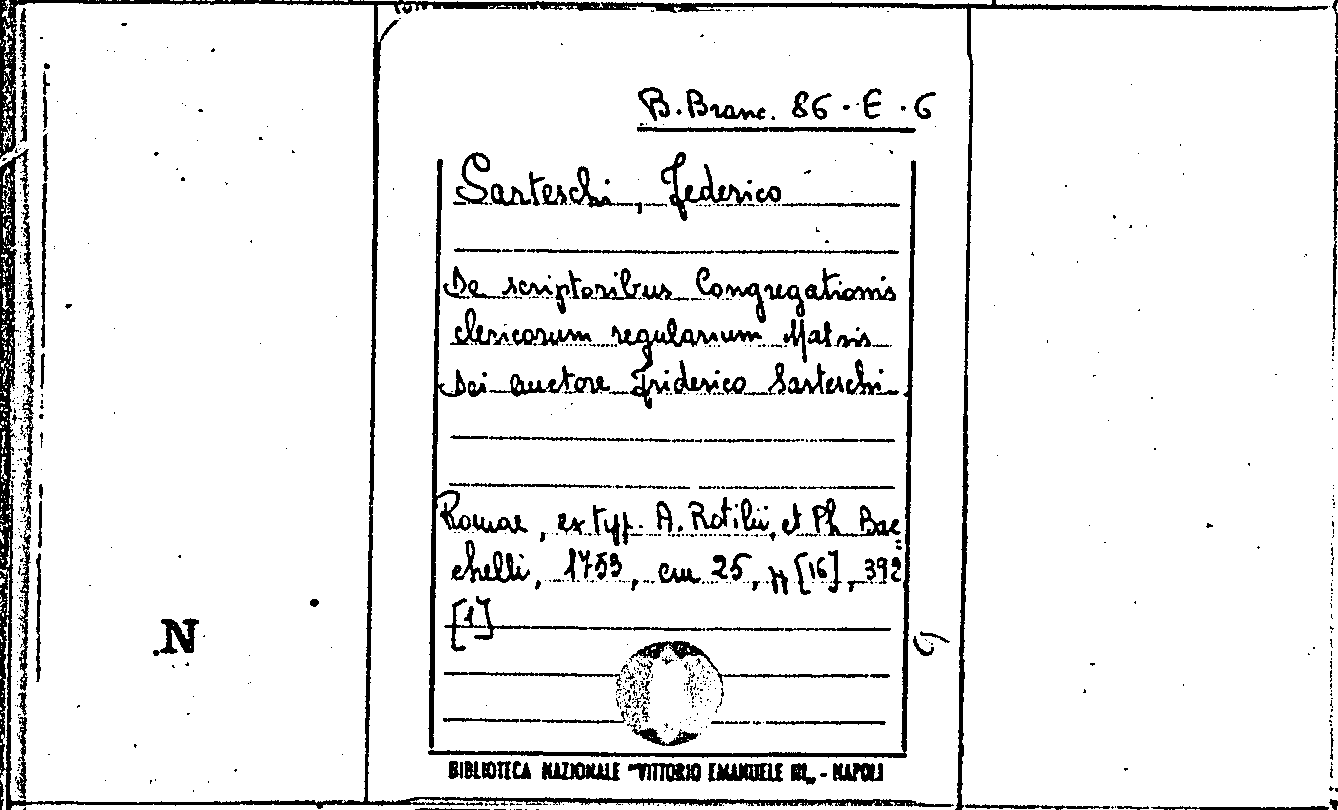 B. Branc. 86 · E · 6
Sarteschi, Federico
De scriptoribus Congregationis
clericorum regularium Matris
Dei auctore Friderico Sarteschi.
Romae, ex typ. A. Rotilii, et Ph. Bac=
chelli, 1753, cm 25, pp [16], 392
[1]
N.
BIBLIOTECA NAZIONALE "VITTORIO EMANUELE III„ - NAPOLI